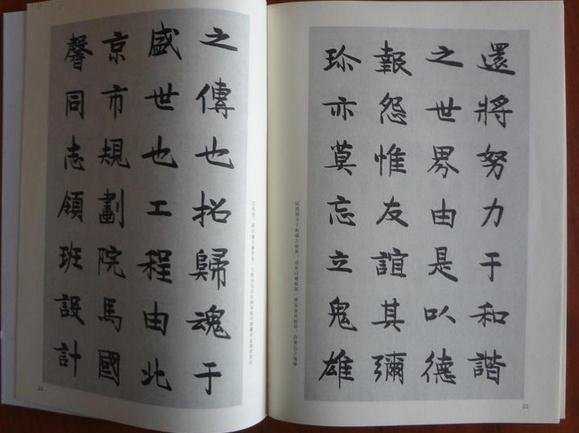 還將努力于和諧
之世界由是以德
報怨惟友誼其彌
珍亦莫忘立鬼雄
之傳也招歸魂于
盛世也工程由北
京市規劃院馬國
馨同志領班設計